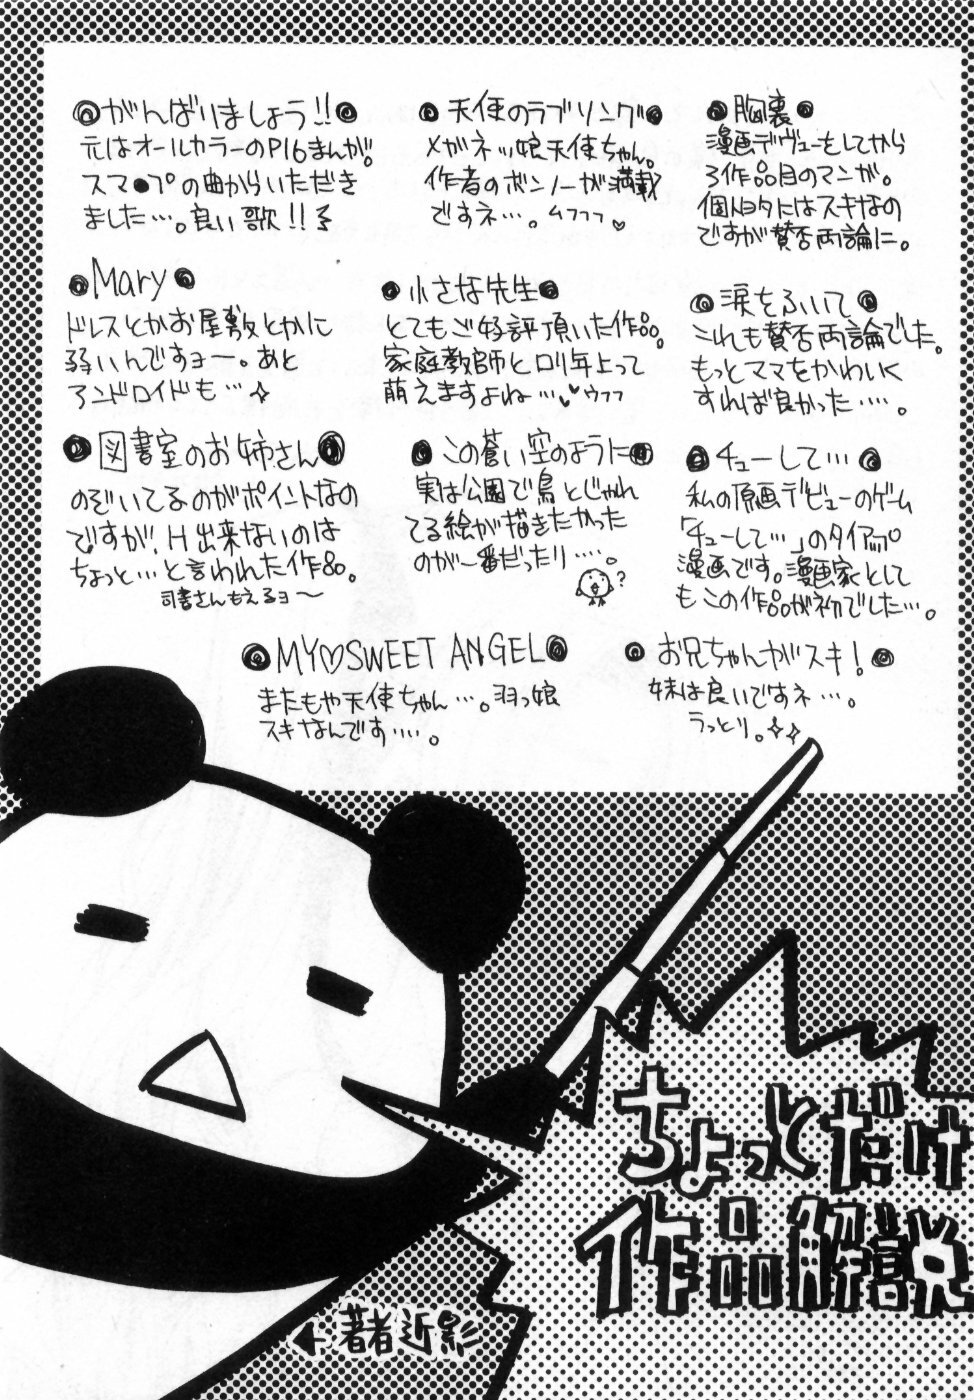 胸裏
漫画デヴューをしてから
3作品目のマンガ。
個人的にはスキなの
ですが賛否両論に。
天使のラブソング
メガネッ娘天使ちゃん。
作者のボンノーが満載
ですネ…。ムフフフ♡
がんばりましょう!!
元はオールカラーのP16まんが。
スマ●プの曲からいただき
ました…。良い歌!!
涙をふいて
これも賛否両論でした。
もっとママをかわいく
すれば良かった……。
小さな先生
とてもご好評頂いた作品。
家庭教師とロリ年上って
萌えますよね…♥ウフフ
Mary
ドレスとかお屋敷とかに
弱いんですヨー。あと
アンドロイドも…☆
チューして…
私の原画デビューのゲーム
「チューして…」のタイアップ
漫画です。漫画家として
もこの作品が初でした…。
この蒼い空のように
実は公園で鳥とじゃれ
てる絵が描きたかった
のが一番だったり……。
?
図書室のお姉さん
のぞいてるのがポイントなの
ですが、H出来ないのは
ちょっと…と言われた作品。
司書さんもえるヨ〜
お兄ちゃんがスキ!
妹は良いですネ…。
うっとり。☆☆
MY♡SWEET ANGEL
またもや天使ちゃん…。羽っ娘
スキなんです……。
ちょっとだけ
作品解説
←著者近影